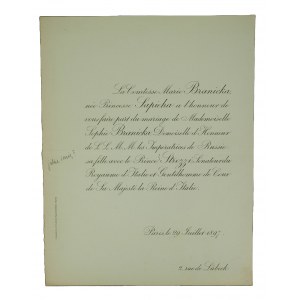 La Comtesse Marie Branicka,
née Princesse Sapieha a l'honneur de
vous faire part du mariage de Mademoiselle
Sophie Branicka Demoiselle d'Honneur
de L.L.M.M. les Impératrices de Russie
sa fille avec le Prince Strozzi Sénateur du
Royaume d'Italie et Gentilhomme de Cour
de Sa Majesté la Reine d'Italie.
Paris, le 29 Juillet
2, rue de Lubeck